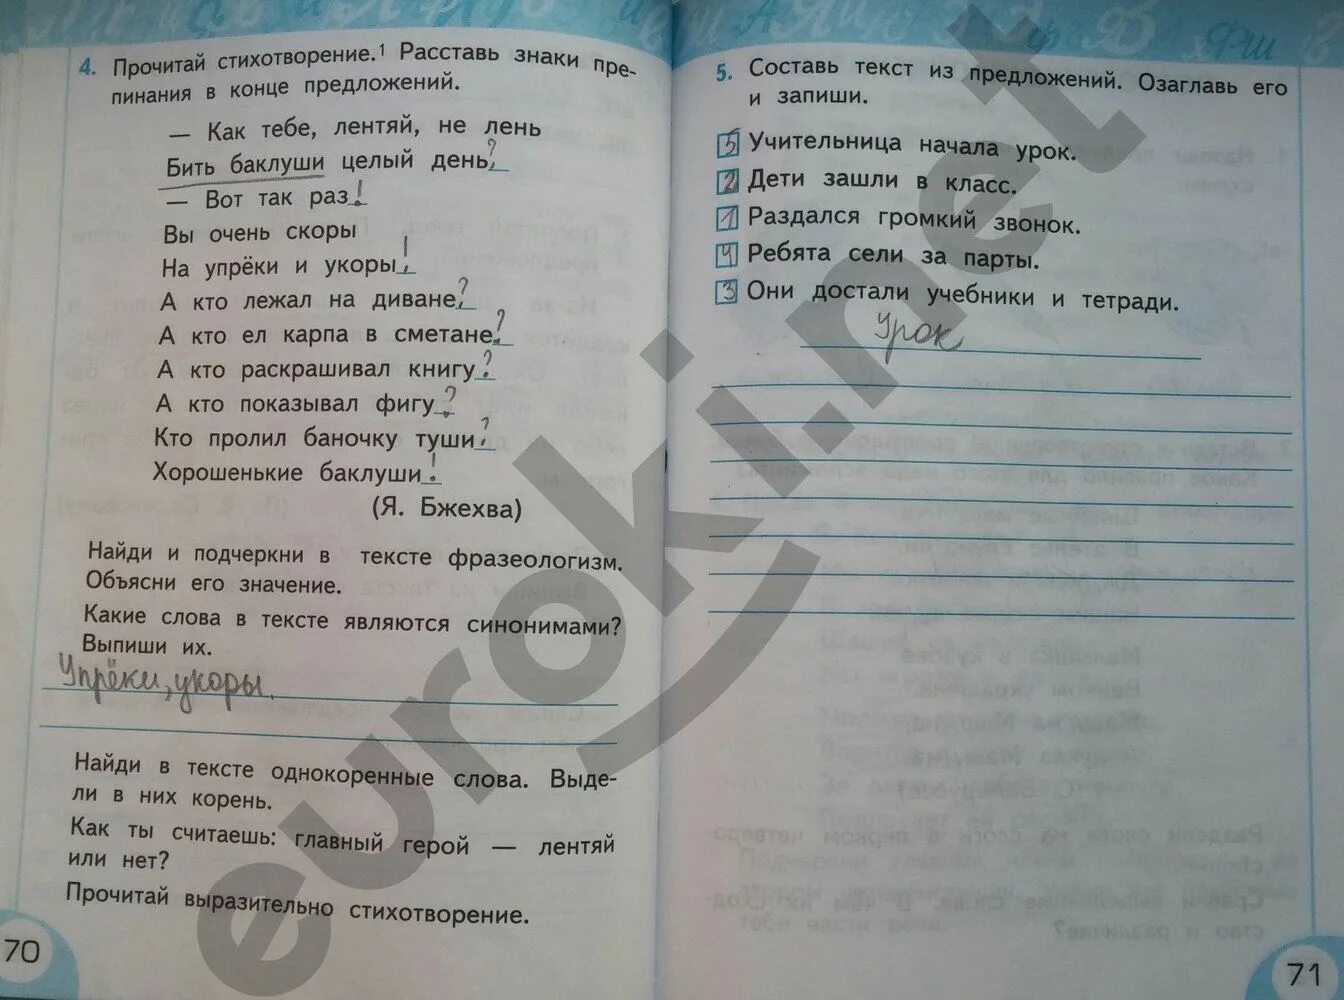 4. Прочитай стихотворение.¹ Расставь знаки пре-
пинания в конце предложений.
— Как тебе, лентяй, не лень
Бить баклуши целый день?
— Вот так раз!
Вы очень скоры
На упрёки и укоры!
А кто лежал на диване?
А кто ел карпа в сметане?
А кто раскрашивал книгу?
А кто показывал фигу?
Кто пролил баночку туши?
Хорошенькие баклуши!
(Я. Бжехва)
Найди и подчеркни в тексте фразеологизм.
Объясни его значение.
Какие слова в тексте являются синонимами?
Выпиши их.
Упрёки, укоры.
Найди в тексте однокоренные слова. Выде-
ли в них корень.
Как ты считаешь: главный герой — лентяй
или нет?
Прочитай выразительно стихотворение.
70
5. Составь текст из предложений. Озаглавь его
и запиши.
5 Учительница начала урок.
2 Дети зашли в класс.
1 Раздался громкий звонок.
4 Ребята сели за парты.
3 Они достали учебники и тетради.
Урок
71
euroki.net